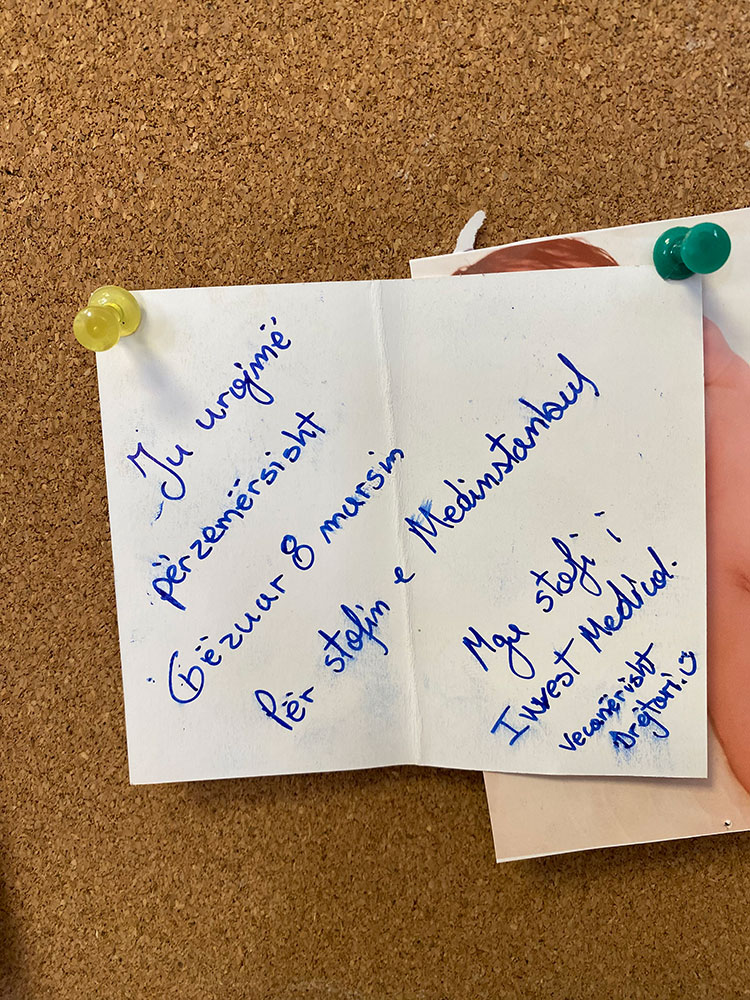 Ju urojmë
përzemërsisht
Gëzuar 8 marsin
Për stafin e Medinstanbul
Nga stafi i
Invest Medical.
Vecanërisht
Drejtori.